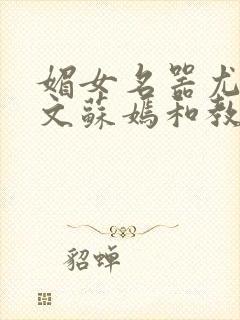 媚女名器尤
文蘇嫣和教
貂蝉